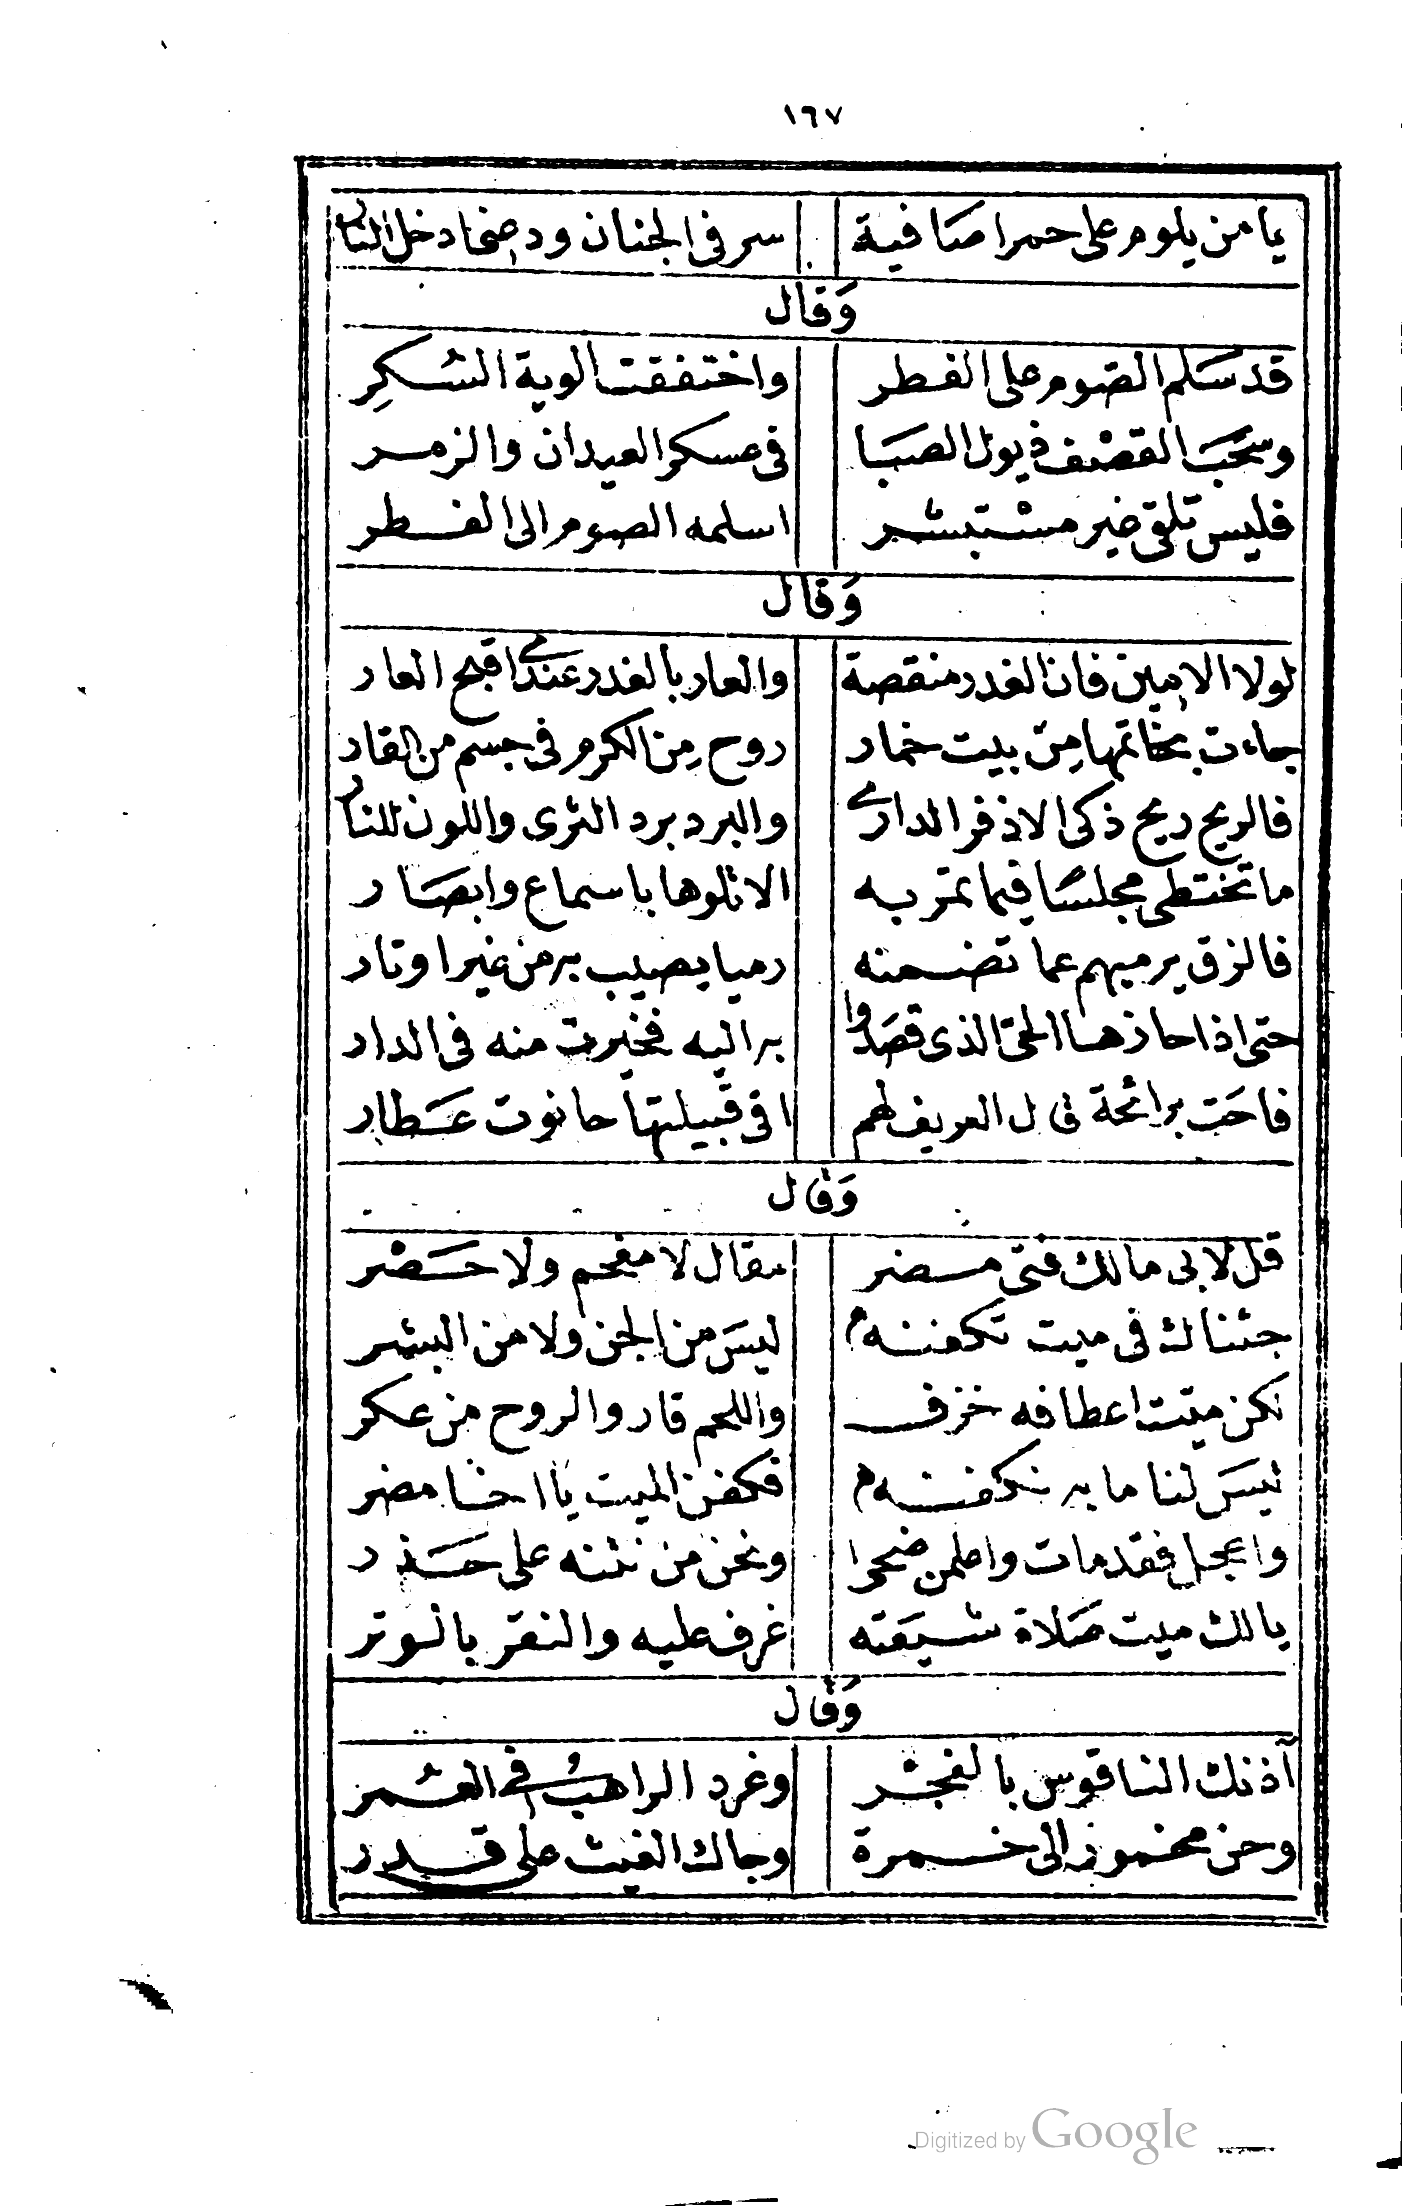 ١٦٧
يا من يلوم على حمرا صافية سر فى الجنان ودعنى ادخل النار
وَقال
قد سَلم الصَوم على الفطر واختفقت الوية الشكرِ
وسَحَبَ القصْف ذيول الصبَا فى عسكر العيدان والزمر
فليس تلقى غير مسْتبشر اسلمه الصوم الى الفطر
وَقال
لولا الامين فان الغدر منقصة والعار بالغدر عندى اقبح العار
جاءت بخاتمها مِن بيت خمار روح مِن الكرم فى جسم من القار
فالريح ريح ذكى الاذفر الدارى والبرد برد الثرى واللون للنار
ما تختطى مجلسًا فيما تمر به الا تلوها باسماع وابصَار
فالزق يرميهم عما تضمنه رميا يصيب به من غير اوتار
حتى اذا حاذها الحى الذى قصَدوا به اليه فخيرت منه فى الدار
فاحَت برائحة قال العريف لهم افى قبيلتها حانوت عَطار
وَقال
قل لابى مالك فتى مضر مقال لا مفحم ولا حَصْر
جئناك فى ميت تكفننه ليسَ من الجن ولا من البشر
لكن ميت اعطافه خزف واللحم قار والروح من عكر
ليسَ لنا ما به نكفننه فكفن الميت يا اخا مضر
واعجل فقد مات واعلمن ضحرا ونحن من نتنه على حَذر
يالك ميت صَلاة شيعَته عزف عليه والنقر بالوتر
وَقال
آذنك الناقوس بالفجْر وغرد الراهبُ فى العُمر
وحن مخمور الى خمرة وجاك الغيث على قدر
Digitized by Google